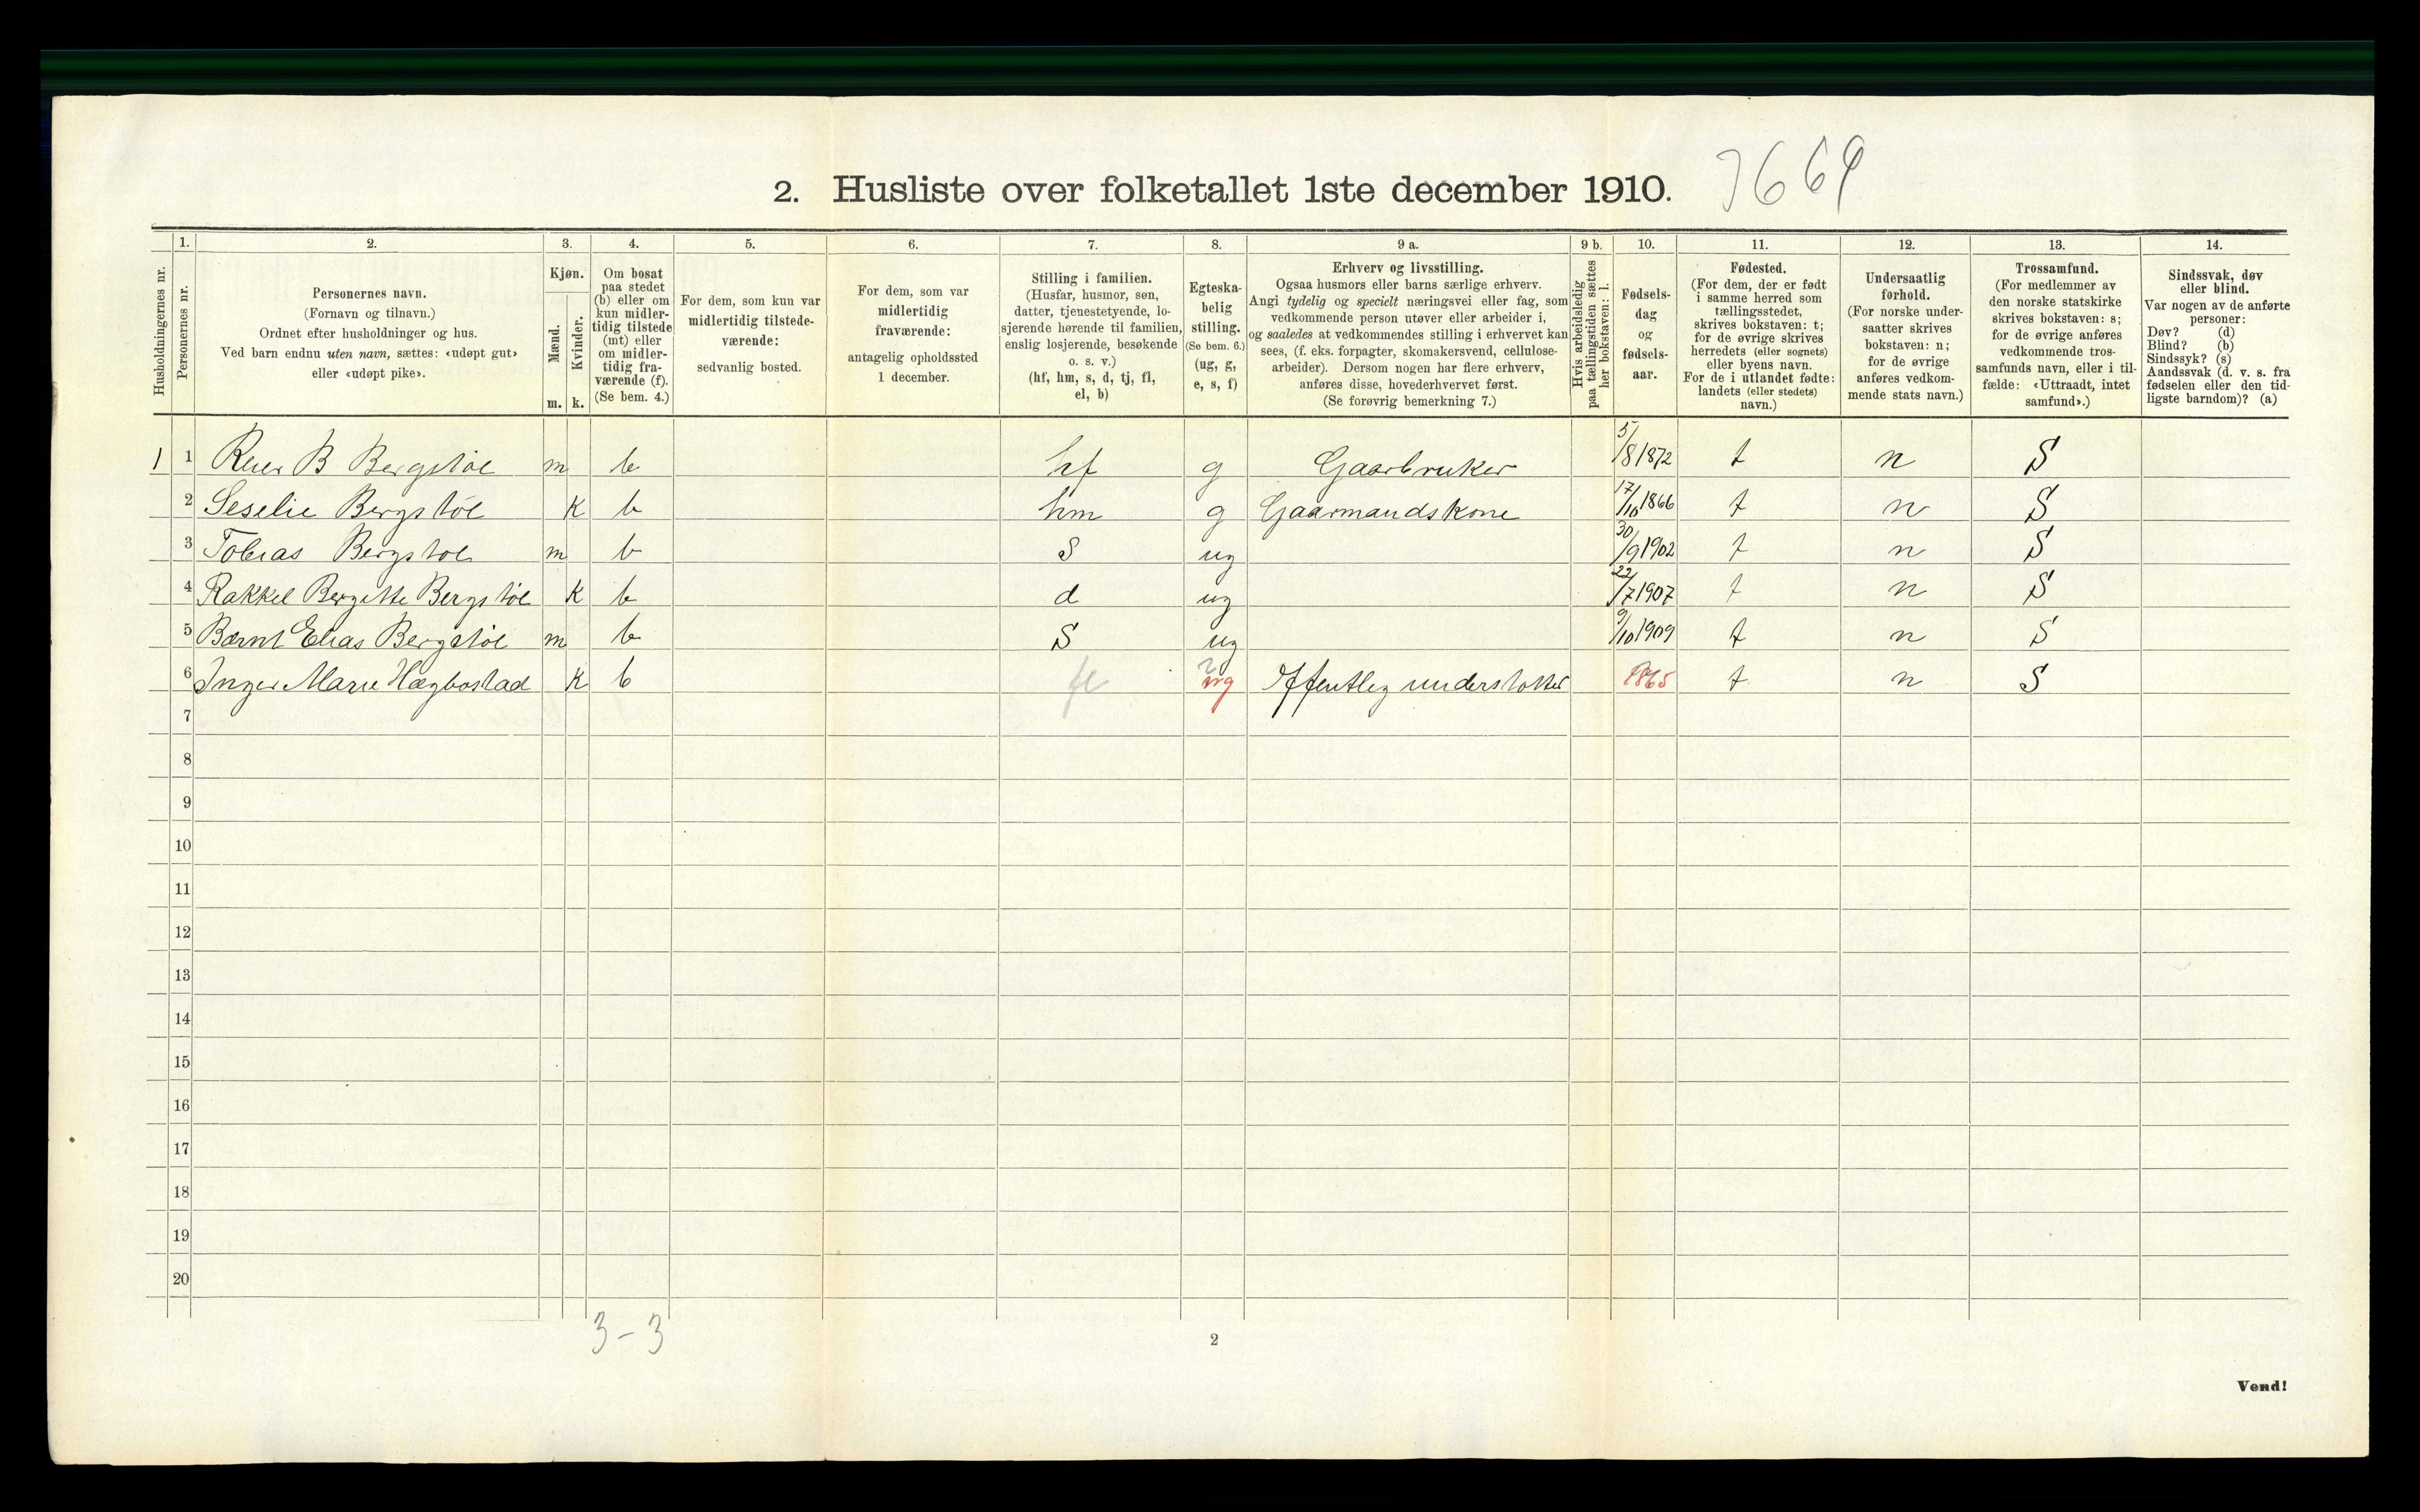 2. Husliste over folketallet 1ste december 1910.
7669
Husholdningernes nr.
1.
Personernes nr.
2.
Personernes navn.
(Fornavn og tilnavn.)
Ordnet efter husholdninger og hus.
Ved barn endnu uten navn, sættes: «udøpt gut»
eller «udøpt pike».
3.
Kjøn.
Mænd.
Kvinder.
m. k.
4.
Om bosat
paa stedet
(b) eller om
kun midler-
tidig tilstede
(mt) eller
om midler-
tidig fra-
værende (f).
(Se bem. 4.)
5.
For dem, som kun var
midlertidig tilstede-
værende:
sedvanlig bosted.
6.
For dem, som var
midlertidig
fraværende:
antagelig opholdssted
1 december.
7.
Stilling i familien.
(Husfar, husmor, søn,
datter, tjenestetyende, lo-
sjerende hørende til familien,
enslig losjerende, besøkende
o. s. v.)
(hf, hm, s, d, tj, fl,
el, b)
8.
Egteska-
belig
stilling.
(Se bem. 6.)
(ug, g,
e, s, f)
9 a.
Erhverv og livsstilling.
Ogsaa husmors eller barns særlige erhverv.
Angi tydelig og specielt næringsvei eller fag, som
vedkommende person utøver eller arbeider i,
og saaledes at vedkommendes stilling i erhvervet kan
sees, (f. eks. forpagter, skomakersvend, cellulose-
arbeider). Dersom nogen har flere erhverv,
anføres disse, hovederhvervet først.
(Se forøvrig bemerkning 7.)
9 b.
Hvis arbeidsledig
paa tællingstiden sættes
her bokstaven: l.
10.
Fødsels-
dag
og
fødsels-
aar.
11.
Fødested.
(For dem, der er født
i samme herred som
tællingsstedet,
skrives bokstaven: t;
for de øvrige skrives
herredets (eller sognets)
eller byens navn.
For de i utlandet fødte:
landets (eller stedets)
navn.)
12.
Undersaatlig
forhold.
(For norske under-
saatter skrives
bokstaven: n;
for de øvrige
anføres vedkom-
mende stats navn.)
13.
Trossamfund.
(For medlemmer av
den norske statskirke
skrives bokstaven: s;
for de øvrige anføres
vedkommende tros-
samfunds navn, eller i til-
fælde: «Uttraadt, intet
samfund».)
14.
Sindssvak, døv
eller blind.
Var nogen av de anførte
personer:
Døv? (d)
Blind? (b)
Sindssyk? (s)
Aandssvak (d. v. s. fra
fødselen eller den tid-
ligste barndom)? (a)
1 1 Reier B Bergstøl m b hf g Gaarbruker 5/8 1872 t n S
2 Seselie Bergstøl K b hm g Gaarmandskone 17/10 1866 t n S
3 Tobias Bergstøl m b S ug 30/9 1902 t n S
4 Rakkel Bergitte Bergstøl K b d ug 22/7 1907 t n S
5 Bernt Elias Bergstøl m b S ug 9/10 1909 t n S
6 Inger Marie Hægbostad K b fl ug Offentleg understøttet 1865 t n S
7
8
9
10
11
12
13
14
15
16
17
18
19
20
3-3
2
Vend!